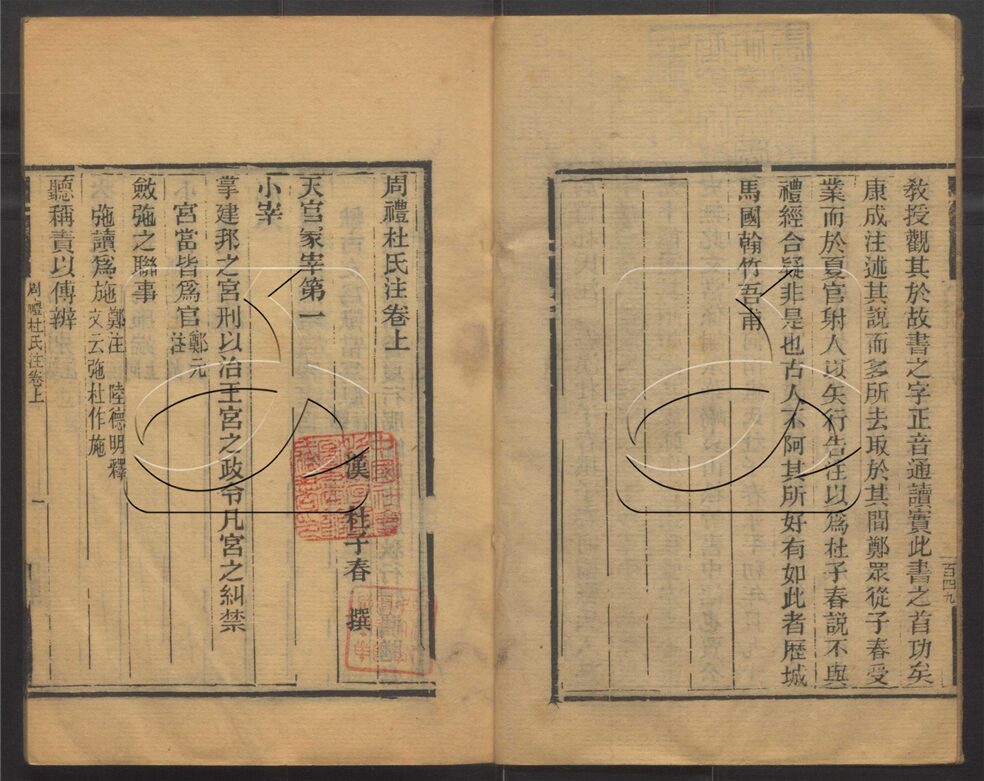 教授觀其於故書之字正音通讀實此書之首功矣
康成注述其說而多所去取於其間鄭眾從子春受
業而於夏官射人以矢行告注以為杜子春說不與
禮經合疑非是也古人不阿其所好有如此者歷城
馬國翰竹吾甫
百四九
周禮杜氏注卷上
漢 杜子春 撰
天官冢宰第一
小宰
掌建邦之宮刑以治王宮之政令凡宮之糾禁
宮當皆爲官鄭元注
斂弛之聯事
弛讀爲施鄭注 陸德明釋文云弛杜作施
聽稱責以傅辨
周禮杜氏注卷上
一